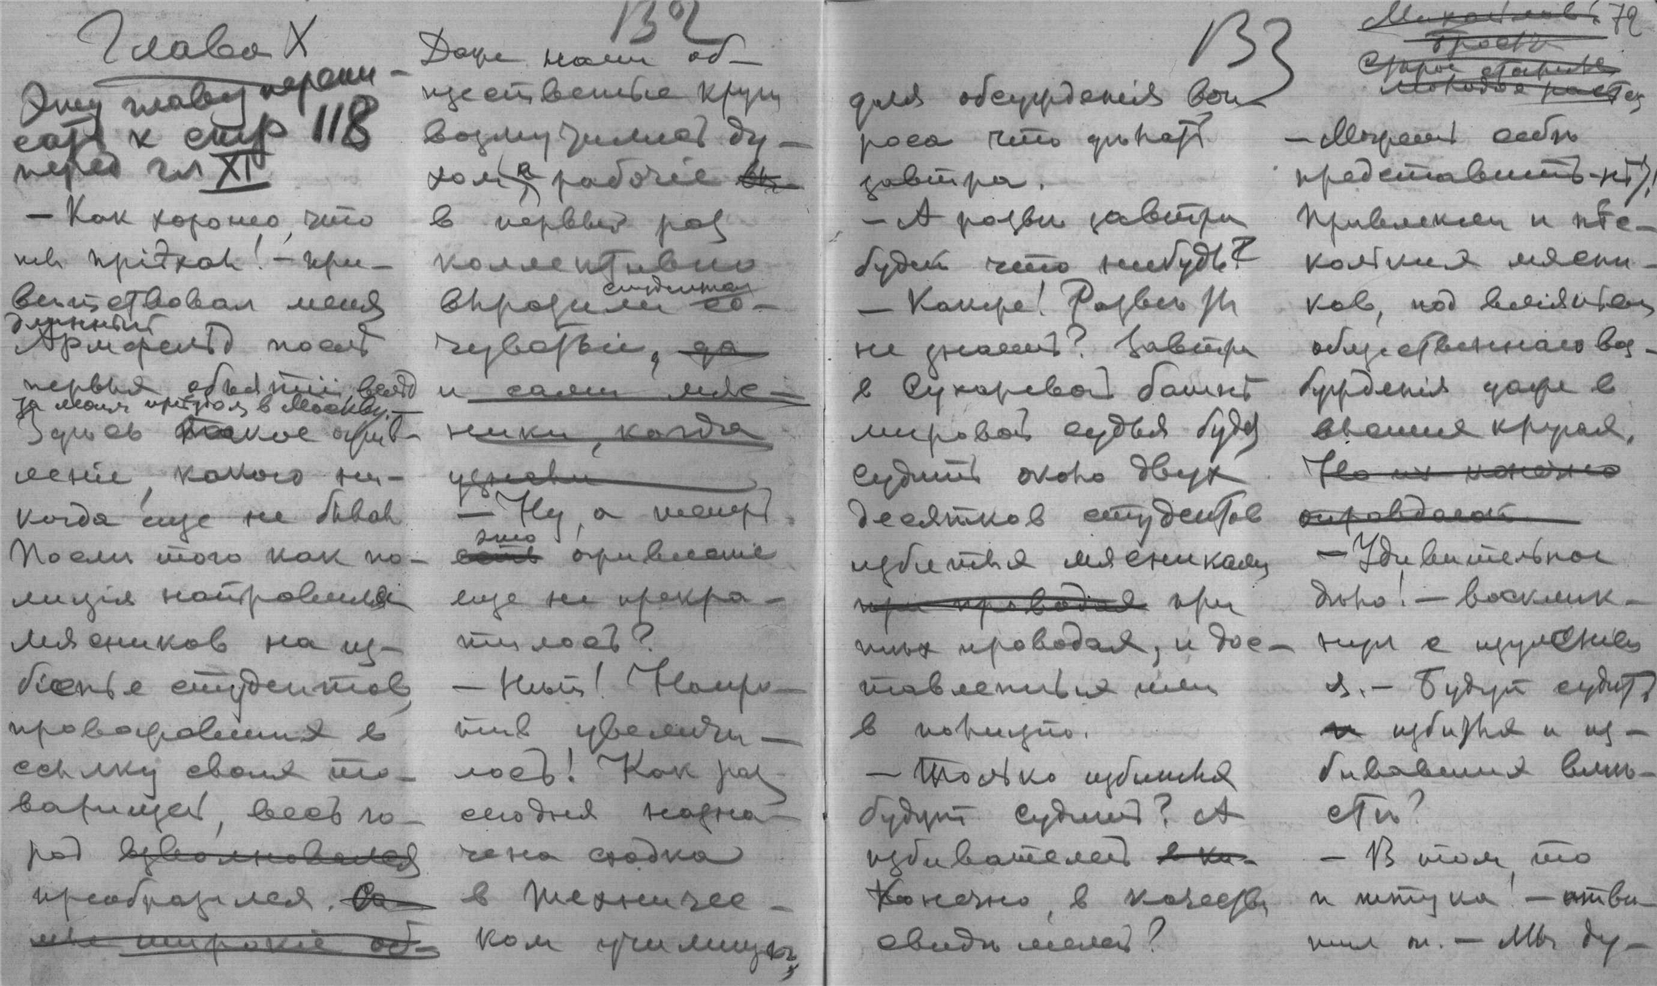 Глава X
Эту главу перепи-
сать к стр 118
перед гл XI
— Как хорошо, что
ты пріѣхал! — при-
вѣтствовал меня
длинный
Армфельд послѣ
первых объятій, вслѣд
за моим пріѣздом в Москву.
Здѣсь такое ожив-
леніе, какого ни-
когда еще не бывало
Послѣ того как по-
лиція направила
мясников на из-
біенье студентов,
провожавших в
ссылку своих то-
варищей, весь го-
род взволновался
преобразился. Са-
мые широкіе об-
В2
Даже наши об-
щественные круги
возмутились ду-
хом, а рабочіе вы-
в первый раз
коллективно
студентам
выразили со-
чувствіе, да
и сами мяс-
ники, когда
узнали
— Ну, а теперь
это
есть оживленіе
еще не прекра-
тилось?
— Нѣт! Напро-
тив увеличи-
лось! Как раз
сегодня назна-
чена сходка
в Техничес-
ком училищѣ,
В3
72
Михайлов.
для обсужденія воп-
роса что дѣлать
завтра.
— А развѣ завтра
будет что нибудь?
— Какже! Развѣ ты
не знаешь? Завтра
в Сухаревой башнѣ
мировой судья будет
судить около двух
десятков студентов
избитых мясниками
при проводах при
тѣх проводах, и дос-
тавленных ими
в полицію.
— Только избитых
будут судить? А
избивателей я ко-
Конечно, в качествѣ
свидѣтелей?
— Можешь себѣ
представить — нѣт!
Привлекли и нѣс-
кольких мясни-
ков, под вліянием
общественнаго воз-
бужденія даже в
высших кругах.
Но их конечно
оправдают
— Удивительное
дѣло! — восклик-
нул с изумленіем
я. — Будут судить
и избитых и из-
бивавших вмѣ-
стѣ?
— В том, то
и штука! — отвѣ-
тил он. — Мы ду-